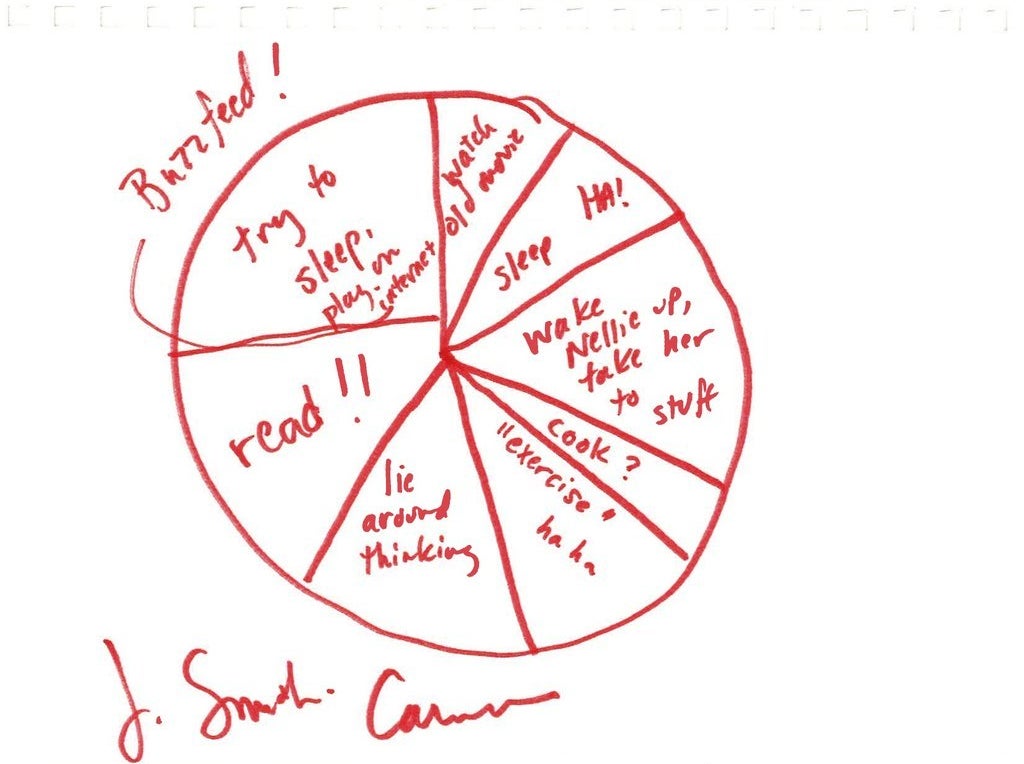 Buzzfeed!
try to
sleep,
play on
internet
watch
old movie
HA!
sleep
wake
Nellie up,
take her
to stuff
cook?
"exercise"
ha ha
lie
around
thinking
read!!
J. Smith.